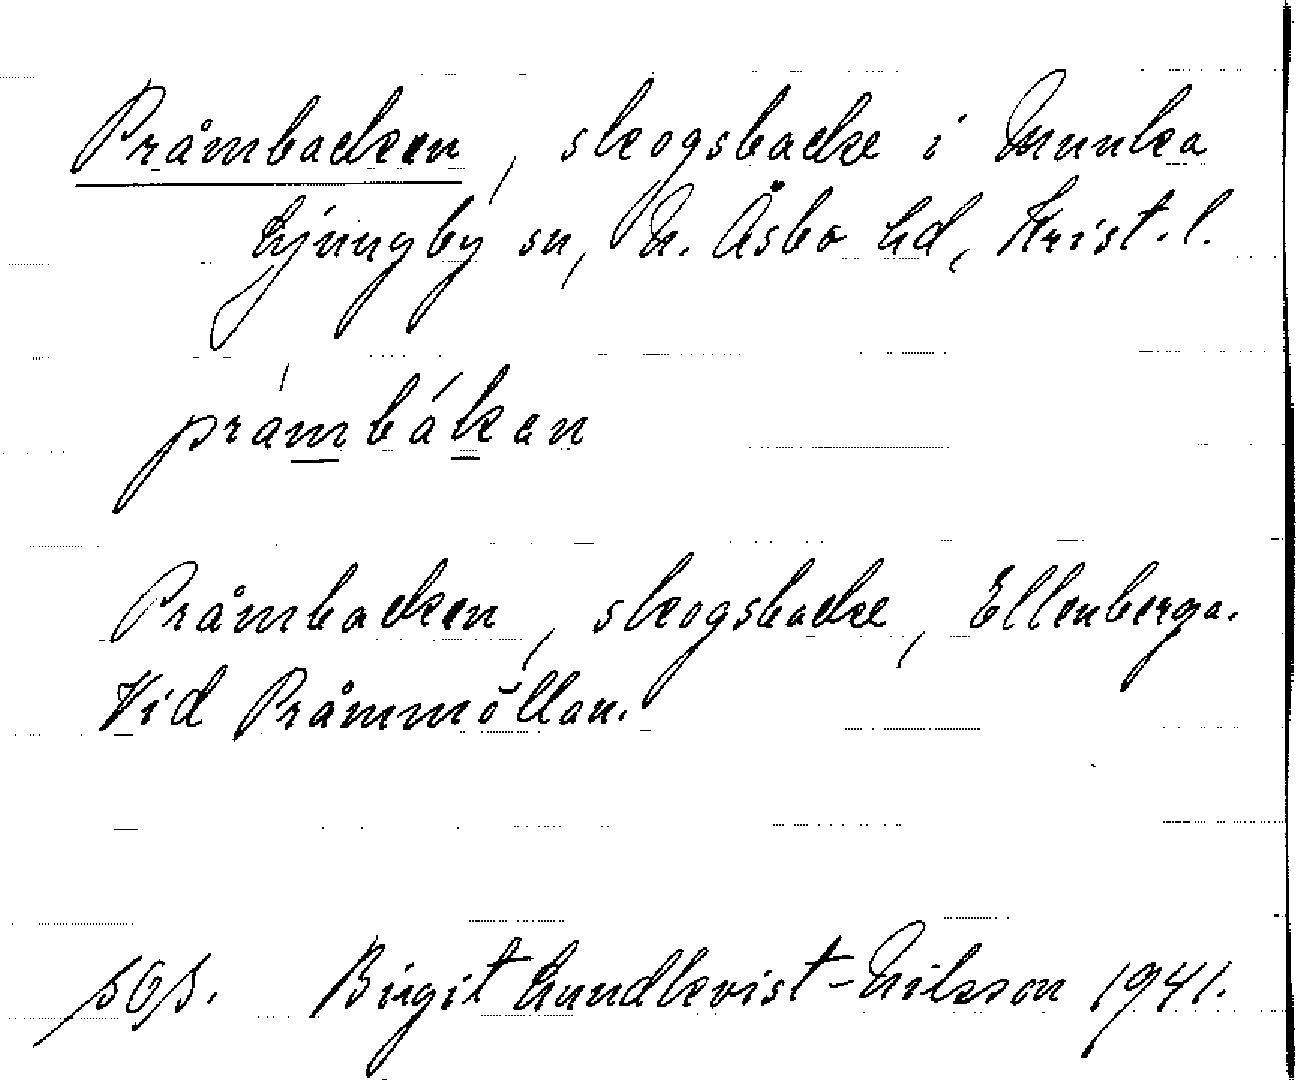 Pråmbacken, skogsbacke i Munka
Ljungby sn, N. Åsbo hd, Krist. l.
pråmbákan
Pråmbacken, skogsbacke, Ellenberga.
Vid Pråmmöllan.
Birgit Lundkvist-Nilsson 1941.